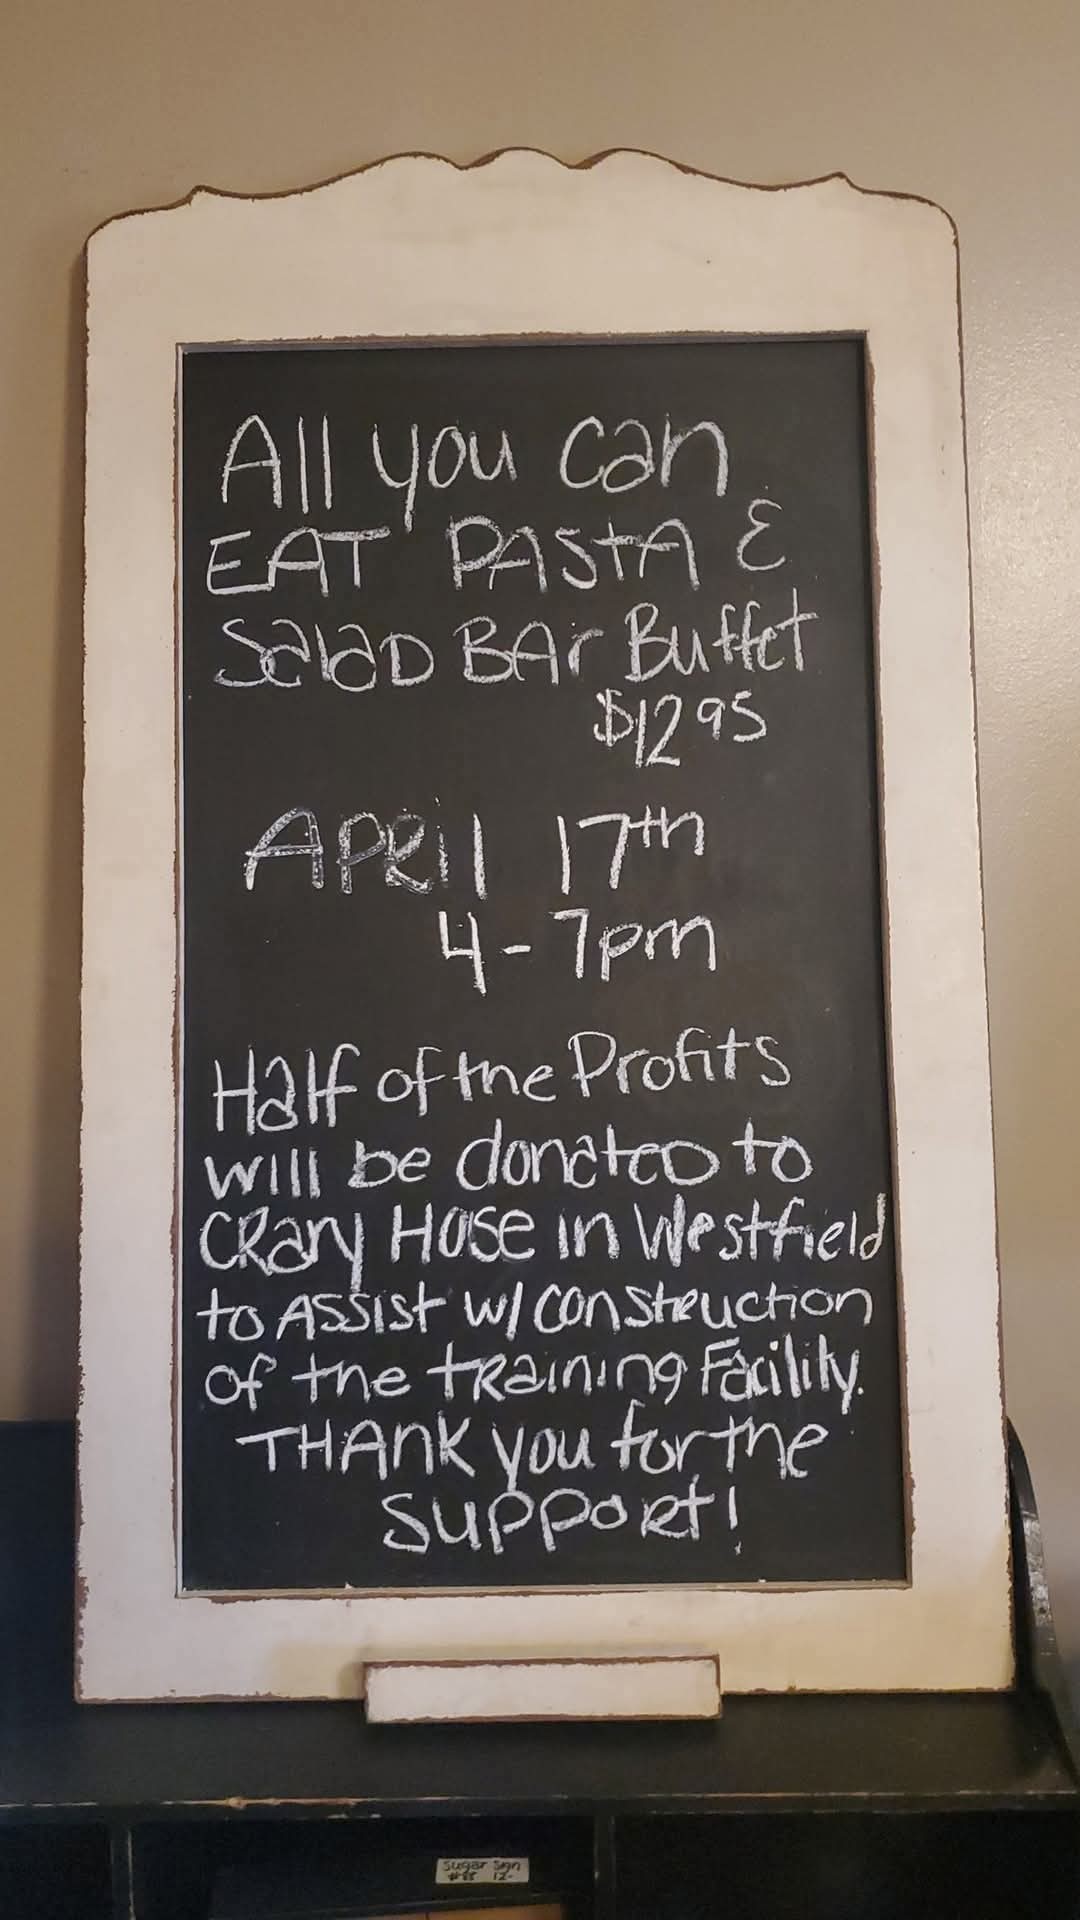 All you can
EAT PASTA &
Salad BAr Buffet
$12 95
APRil 17th
4-7pm
Half of the Profits
will be donated to
CRary Hose in Westfield
to ASSist w/ construction
of the tRaining Facility.
THANK you for the
SuppoRt!
Sugar Sign
12-